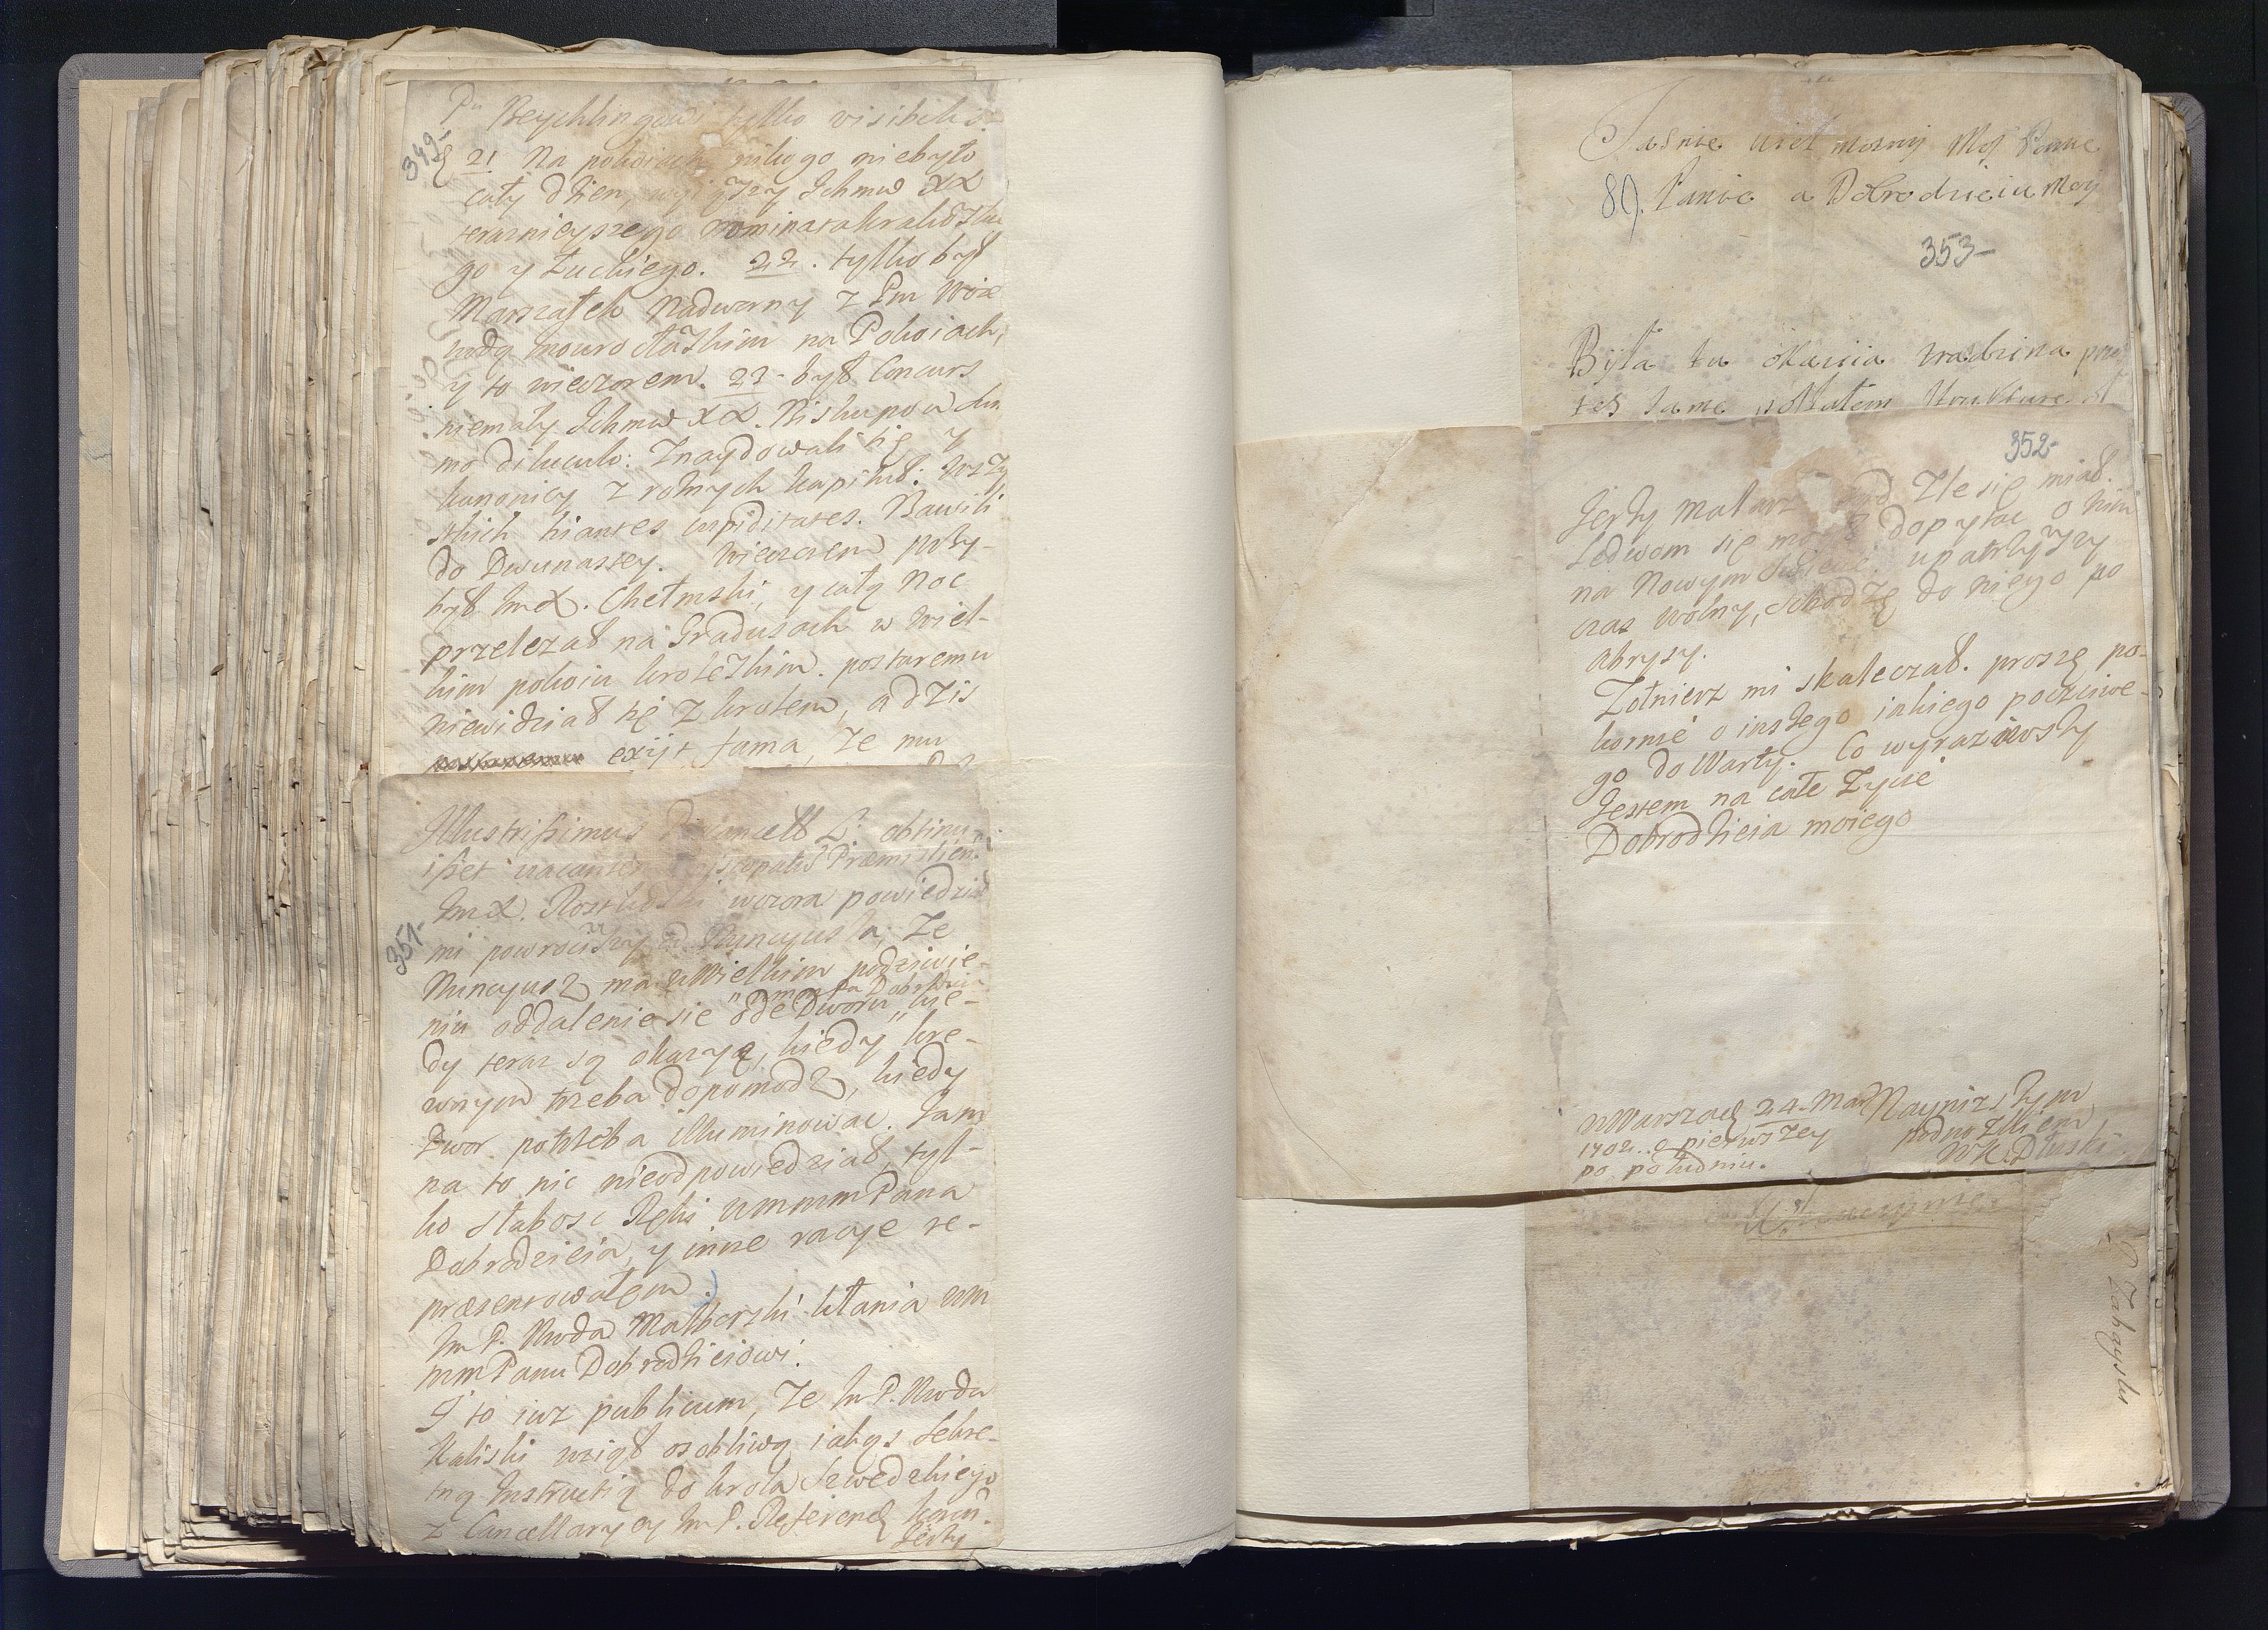 Pu Reychlingowi tylko visibilis.
349-
21 Na pokoiach nikogo niebyło
cały dzien, wyiąwszy Ichmw XX
teraznieyszego nominata krakowskie
go y Łuckiego. 22. tylko był
Marszałek Nadworny z Pm Woie
wodą Inowrocławskim na Pokoiach,
y to wieczorem. 23- był Concurs
niemały Ichmw XX. Biskupow
mo diluculo: Znaydowali się y
kanonicy z roznych kapituł: wszy
stkich hiantes cupiditates. Bawili
do Dwunastey. Wieczorem przy-
był ImX. Chełmski, y całą noc
przelezał na Gradusach w Wiel-
kim pokoiu krolewskim. postaremu
niewidział się z krolem, a dzis
exijt fama, ze mu
Illustrissimus cancell L: obtinu-
isset vacantem Episcopatus Præmislien.
351-
ImX. wczora powiedział
mi powrociwszy od Nuncyusza, ze
Nuncyusz ma w Wielkim podziwie-
niu oddalenie sie ode Dworu kie-
dy teraz są okazye, kiedy kre-
wnym trzeba dopomodz, kiedy
Dwor potrzeba illuminowac. Jam
na to nic nieodpowiedział, tyl-
ko słabosc Ręki WmmmPana
Dobrodzieia, y inne racye re-
præsentowałem.
Im P. Wwda Malborski kłania Wm
mmPanu Dobrodzieiowi.
I to iuz publicum, ze Im P. Wwda
Kaliski wziął osobliwą iakąs sekre-
tną Instructią do krola Szwedzkiego
z Cancellaryey Im P. Referend koron.
Jerzy
Jasnie Wiel mozny Mci Panie
89. Panie a Dobrodzieiu Moy
353-
Była tu okazia zradzina prze
tes same
352-
Jerzy malarz zle się miał.
Ledwom się mogł dopytac o nim
na Nowym Swiecie. upatrzywszy
czas wolny, schodzę do niego po
abrysy.
Zołnierz mi skaleczał. proszę po-
kornie o inszego iakiego poczciwe-
go do Warty. Co wyraziwszy
Jestem na całe zycie
Dobrodzieia moiego
w Warszaw 24. Mar
1702. o pierwszey
po południu.
Nayniszszym
podnozkiem
WK Dłuski.
P Zahayski